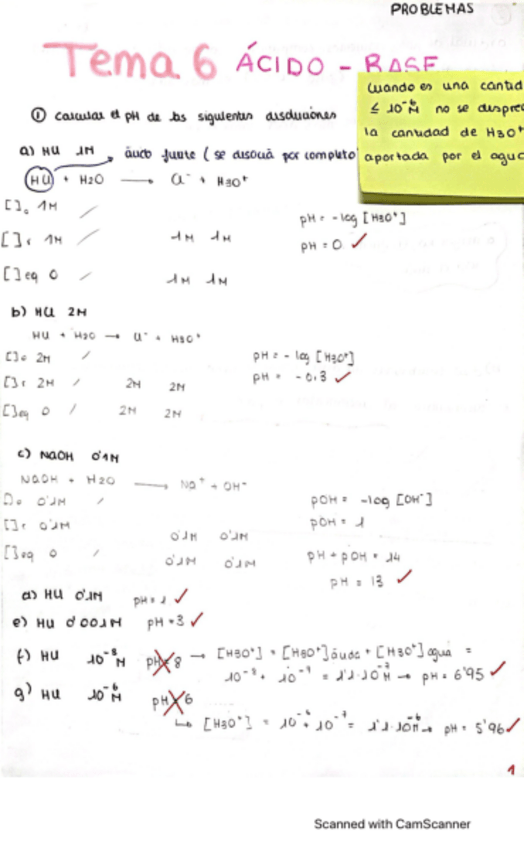 PROBLEMAS
Tema 6 ÁCIDO - BASE
Cuando es una cantid
≤ 10⁻⁶ M no se despre
la cantidad de H3O⁺
aportada por el agua
① calcular el pH de las siguientes disoluciones
a) HCl 1M → ácido fuerte (se disocia por completo)
HCl + H2O → Cl⁻ + H3O⁺
[ ]o 1M /
[ ]r 1M / 1M 1M
[ ]eq 0 / 1M 1M
pH = -log [H3O⁺]
pH = 0 ✓
b) HCl 2M
HCl + H2O → Cl⁻ + H3O⁺
[ ]o 2M /
[ ]r 2M / 2M 2M
[ ]eq 0 / 2M 2M
pH = - log [H3O⁺]
pH = -0,3 ✓
c) NaOH 0'1M
NaOH + H2O → Na⁺ + OH⁻
[ ]o 0'1M /
[ ]r 0'1M 0'1M 0'1M
[ ]eq 0 / 0'1M 0'1M
pOH = -log [OH⁻]
pOH = 1
pH + pOH = 14
pH = 13 ✓
d) HCl 0'1M pH = 1 ✓
e) HCl 0'001M pH = 3 ✓
f) HCl 10⁻⁸ M pH = 8 → [H3O⁺] = [H3O⁺] ácido + [H3O⁺] agua =
10⁻⁸ + 10⁻⁷ = 1'1·10⁻⁷ M → pH = 6'95 ✓
g) HCl 10⁻⁶ M pH = 6
↳ [H3O⁺] = 10⁻⁶ + 10⁻⁷ = 1'1·10⁻⁶ M → pH = 5'96 ✓
1
Scanned with CamScanner